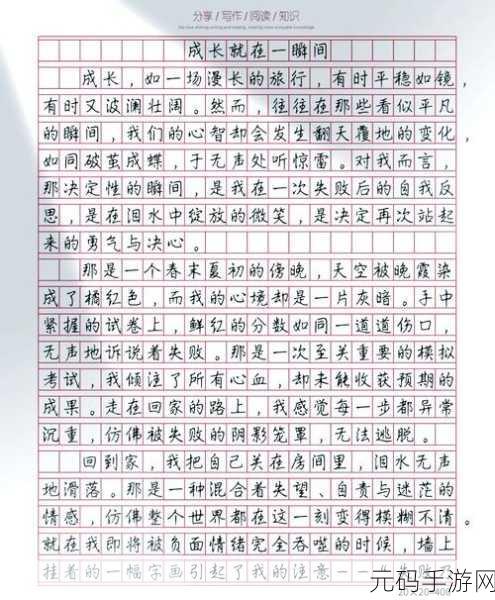 分享/写作/阅读/知识
成长就在一瞬间
成长，如一场漫长的旅行，有时平稳如镜，
有时又波澜壮阔。然而，往往在那些看似平凡
的瞬间，我们的心智却会发生翻天覆地的变化，
如同破茧成蝶，于无声处听惊雷。对我而言，
那决定性的瞬间，是我在一次失败后的自我反
思，是在泪水中绽放的微笑，是决定再次站起
来的勇气与决心。
那是一个春末夏初的傍晚，天空被晚霞染
成了橘红色，而我的心境却是一片灰暗。手中
紧握的试卷上，鲜红的分数如同一道道伤口，
无声地诉说着失败。那是一次至关重要的模拟
考试，我倾注了所有心血，却未能收获预期的
成果。走在回家的路上，我感觉每一步都异常
沉重，仿佛被失败的阴影笼罩，无法逃脱。
回到家，我把自己关在房间里，泪水无声
地滑落。那是一种混合着失望、自责与迷茫的
情感，仿佛整个世界都在这一刻变得模糊不清。
就在我即将被负面情绪完全吞噬的时候，墙上
挂着的一幅字画引起了我的注意——
20×20=400
元码手游网